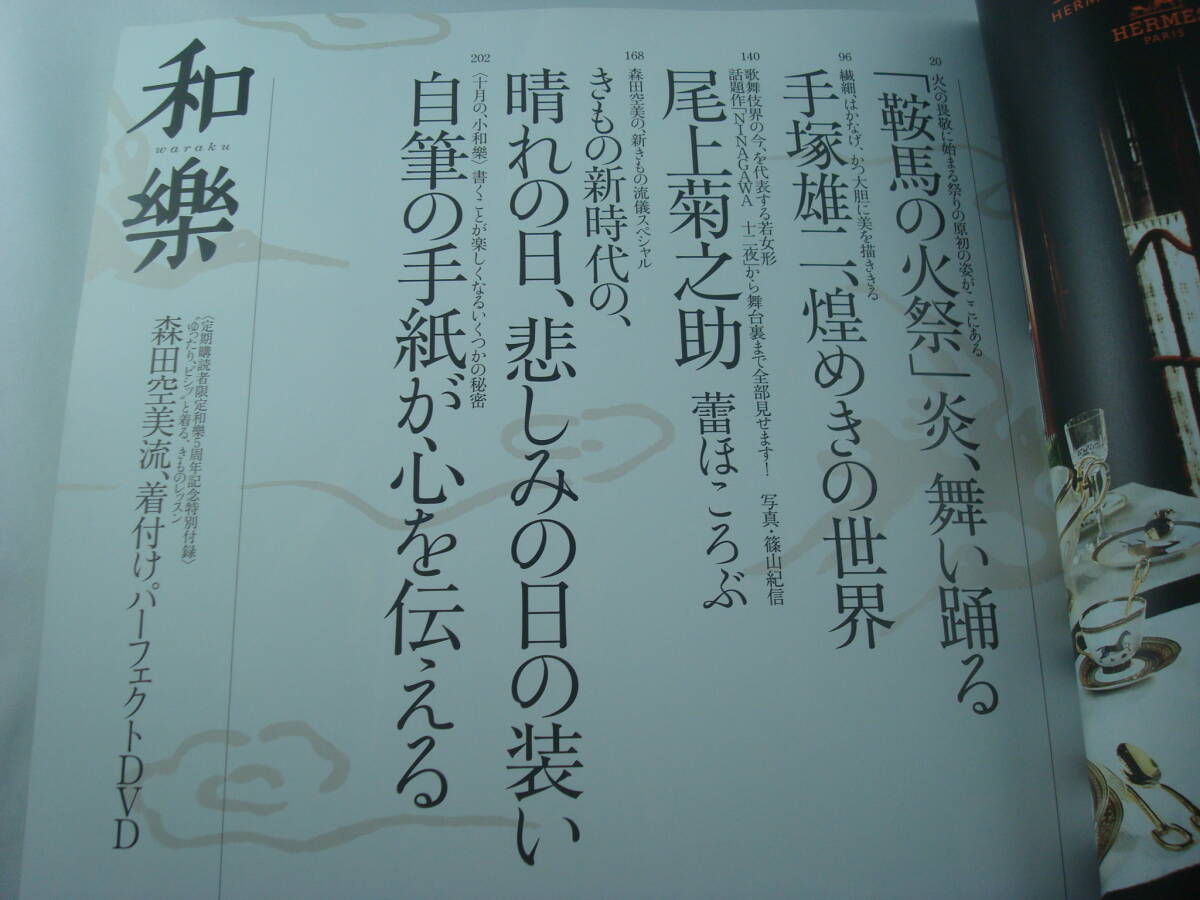 20
火への畏敬に始まる祭りの原初の姿がここにある
「鞍馬の火祭」炎、舞い踊る
96
繊細、はかなげ、かつ大胆に美を描ききる
手塚雄二、煌めきの世界
140
歌舞伎界の今、を代表する若女形
話題作「NINAGAWA 十二夜」から舞台裏まで全部見せます! 写真・篠山紀信
尾上菊之助 蕾ほころぶ
168
森田空美の、新きもの流儀スペシャル
きもの新時代の、
晴れの日、悲しみの日の装い
202
〈十月の、小和樂〉書くことが楽しくなるいくつかの秘密
自筆の手紙が、心を伝える
和樂
waraku
〈定期購読者限定和樂5周年記念特別付録〉
“ゆったり、ピシッ”と着る、きものレッスン
森田空美流、着付けパーフェクトDVD
HERMÈS
PARIS